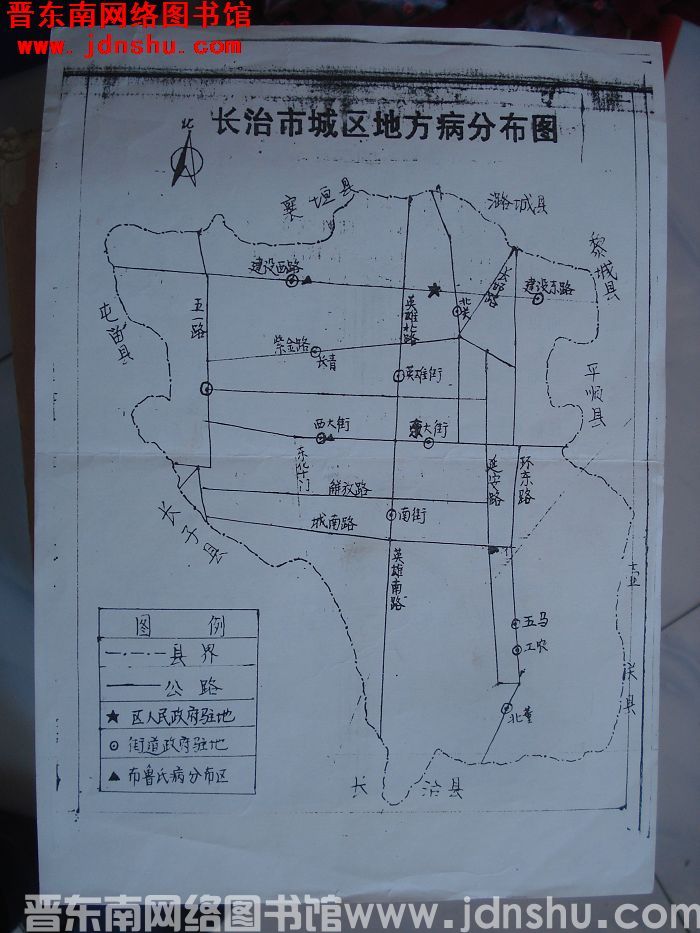 晋东南网络图书馆
www.jdnshu.com
长治市城区地方病分布图
北
襄垣县
潞城县
黎城县
屯留县
平顺县
建设西路
建设东路
五一路
英雄北路
北关
太邯路
紫金路
长青
英雄街
西大街
东大街
东华门
延安路
环东路
解放路
城南路
南街
长子县
英雄南路
五马
工农
北董
壶关县
长治县
图例
县界
公路
区人民政府驻地
街道政府驻地
布鲁氏病分布区
晋东南网络图书馆www.jdnshu.com